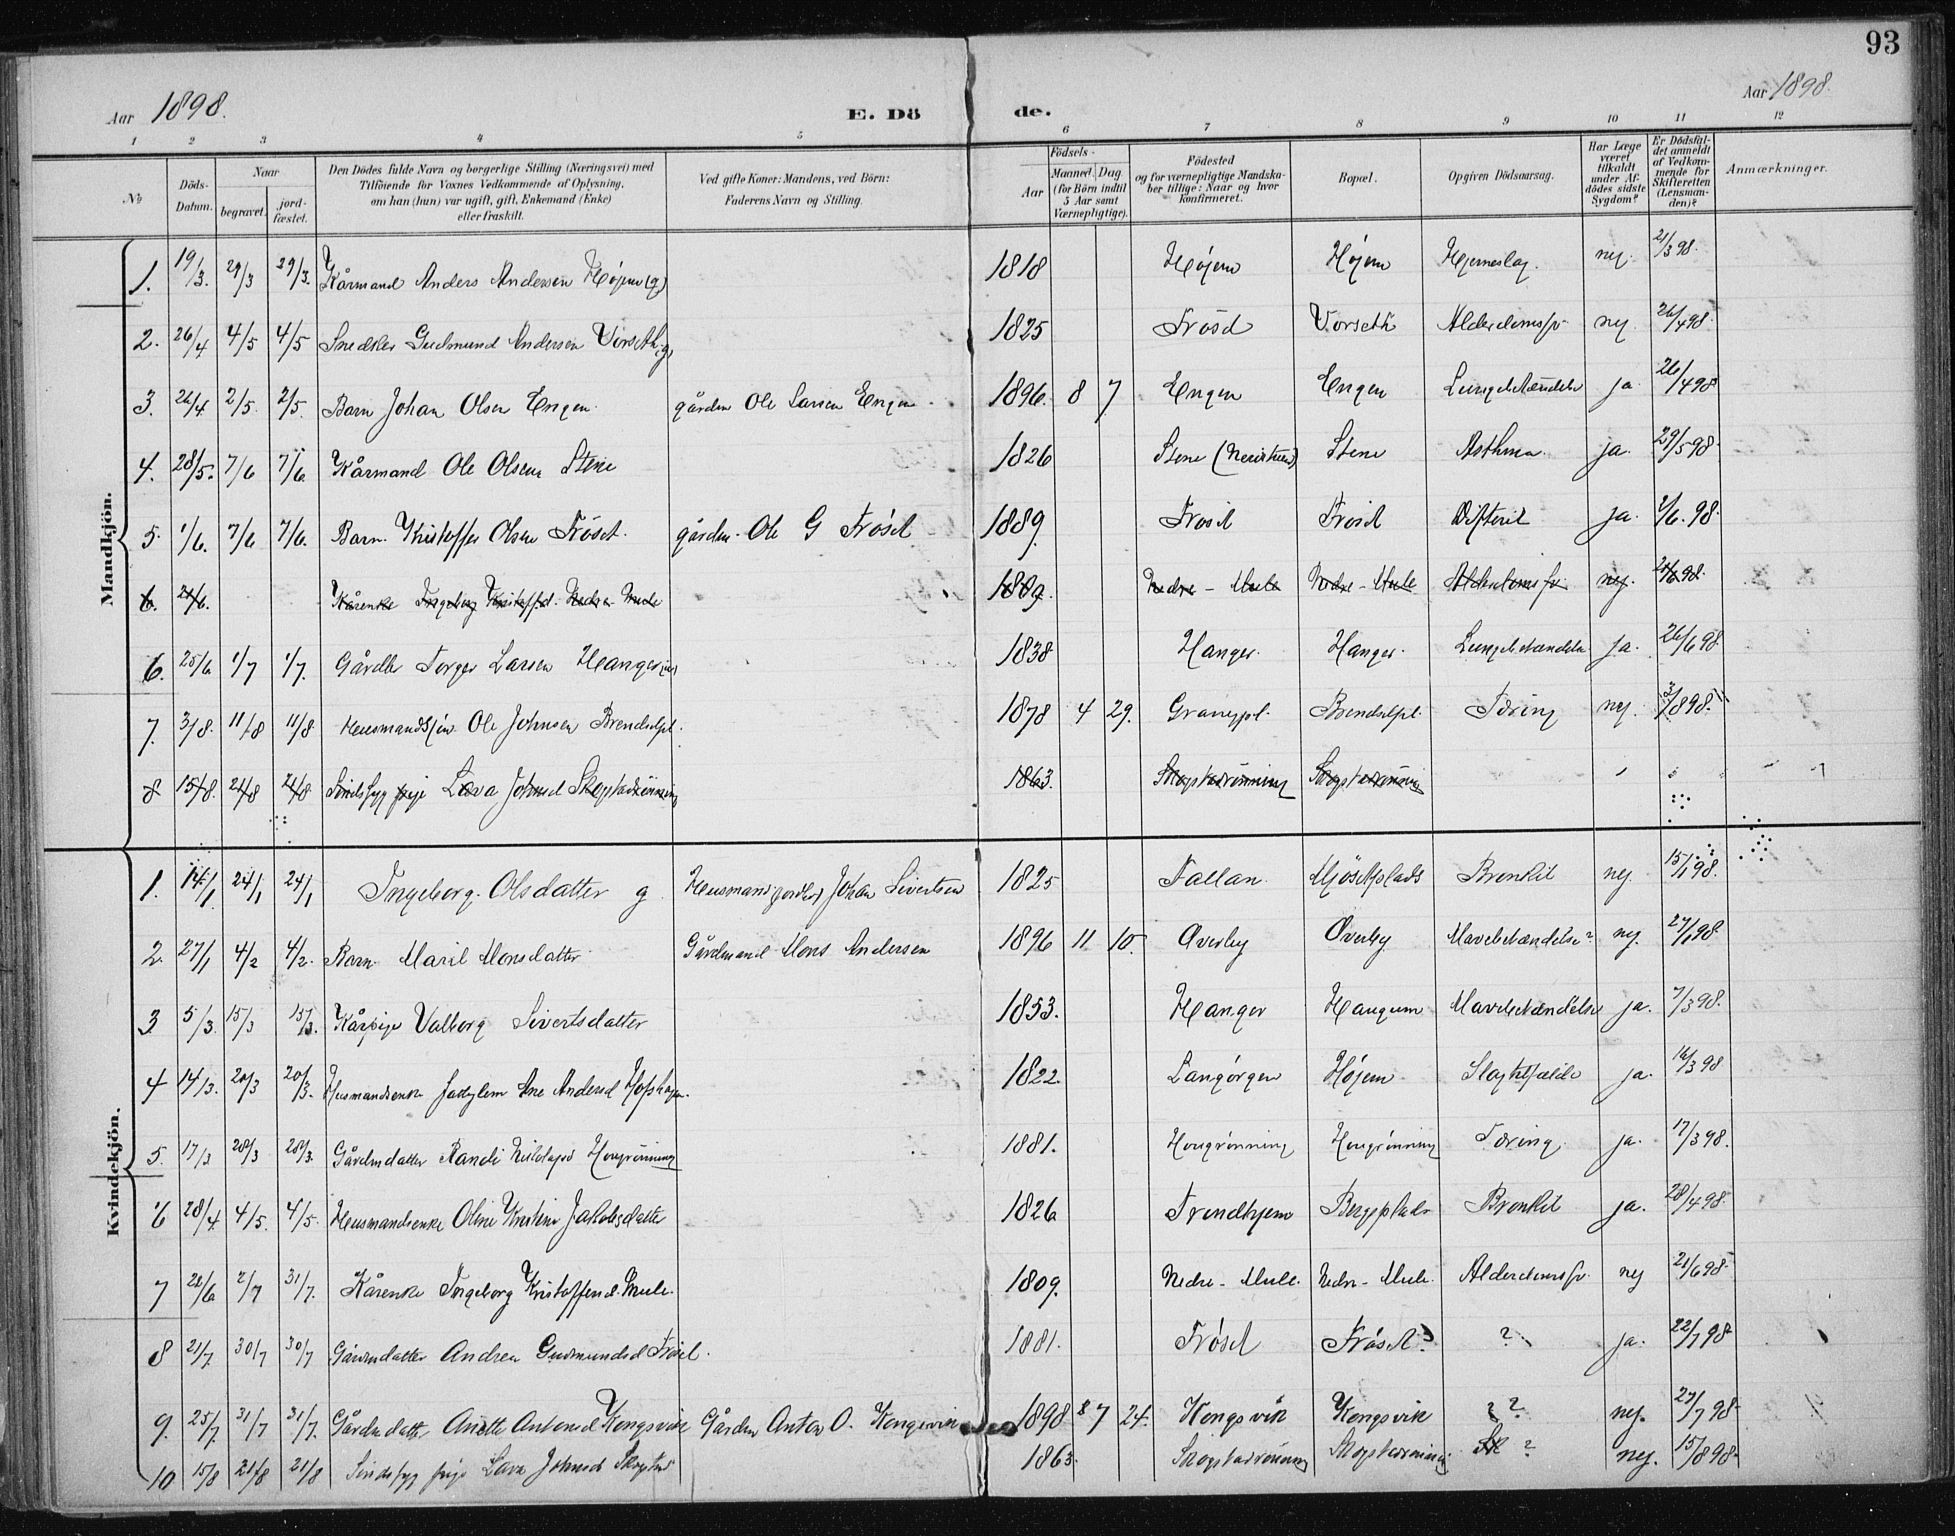 93
Aar 1898. E. Dö de. Aar 1898.
1 2 3 4 5 6 7 8 9 10 11 12
№ Döds-Datum. Naar begravet. jord-fæstet. Den Dödes fulde Navn og borgerlige Stilling (Næringsvei) med Tilföiende for Voxnes Vedkommende af Oplysning, om han (hun) var ugift, gift, Enkemand (Enke) eller fraskilt. Ved gifte Koner: Mandens, ved Börn: Faderens Navn og Stilling. Födsels- Aar Maaned. Dag. (for Börn indtil 5 Aar samt Værnepligtige). Födested og for værnepligtige Mandskaber tillige: Naar og hvor konfirmeret. Bopæl. Opgiven Dödsaarsag. Har Læge været tilkaldt under Afdödes sidste Sygdom? Er Dödsfaldet anmeldt af Vedkommende for Skifteretten (Lensmanden)? Anmærkninger.
Mandkjön.
1. 19/3. 29/3 29/3. Kårmand Anders Andersen Højem (g) 1818 Højem Højem Hjerneslag. nej. 21/3 98.
2. 26/4 4/5 4/5 Snedker Gudmund Andersen Vorseth (g) 1825 Frösd Vorseth Alderdomssv. nej. 26/4 98.
3. 26/4 2/5. 2/5. Barn Johan Olsen Engen. gårdm Ole Larsen Engen. 1896. 8 7 Engen Engen Lungebetændelse ja. 26/4 98
4. 28/5. 7/6 7/6. Kårmand Ole Olsen Stene 1826 Stene Stene Asthma. ja. 29/5 98.
5. 1/6. 7/6 7/6. Barn. Kristoffer Olsen Fröset. gårdm. Ole G Fröset 1889. Fröset Fröset Difterit ja. 2/6. 98.
6. 21/6. Kårenke Ingeborg Kristoffsd. Nedre Mule 1889. Nedre - Mule Nedre - Mule Alderdomssv. nej. 21/6 98.
6. 25/6. 1/7 1/7. Gårdbr Torger Larsen Hanger 1838 Hanger. Hanger. Lungebetændelse ja. 26/6 98.
7. 3/8. 11/8 11/8 Husmandssön Ole Johnsen Brendselpl. 1878 4 29. Brendselpl. Tæring nej. 3/8 98.
8 15/8. 21/8 21/8 Sindssyg pige Lava Johnsd Skogstadrönning 1863. Skogstadrönning Skogstadrönning
Kvindekjön.
1. 14/1 24/1 24/1 Ingeborg Olsdatter g Husmand Johan Sivertsen 1825 Fallan Mjösetplads Bronkit nej. 15/1 98.
2. 27/1 4/2 4/2. Barn Maril Monsdatter Gårdmand Mons Andersen 1896 11 10. Overby Overby Mavebetændelse? nej. 27/1 98.
3 5/3. 15/3 15/3. Kårpige Valborg Sivertsdatter 1853. Hanger Haugum Mavebetændelse ja. 7/3 98.
4 14/3. 20/3 20/3. Husmandsenke Ane Andersd 1822. Langörgen Højem. Slagtilfælde ja. 16/3 98
5. 17/3 28/3 28/3. Gårdmdatter Randi Hougrönning 1881. Hougrönning Hougrönning Tæring. ja. 17/3 98.
6 28/4 4/5. 4/5. Husmandsenke Oline Kristine Jakobsdatter 1826 Trondhjem Bergsplads Bronkit ja. 28/4 98.
7 21/6 2/7 31/7. Kårenke Ingeborg Kristoffersd. Mule. 1809. Nedre - Mule. Nedre - Mule. Alderdomssv. nej 21/6 98.
8 21/7. 30/7 30/7 Gårdmdatter Andrea Gudmundsd Fröset. 1881. Fröset Fröset. ? ja. 22/7 98.
9. 25/7. 31/7 31/7. Gårdmdatter Anette Antonsd Kongsvik Gårdm Anton O. Kongsvik 1898 7 24. Kongsvik Kongsvik ? ? nej. 27/7 98.
10 15/8 21/8 21/8 Sindssyg pige Lava Johnsd Skogstad 1863. Skogstadrönning Skogstadrönning ? nej. 15/8 98.